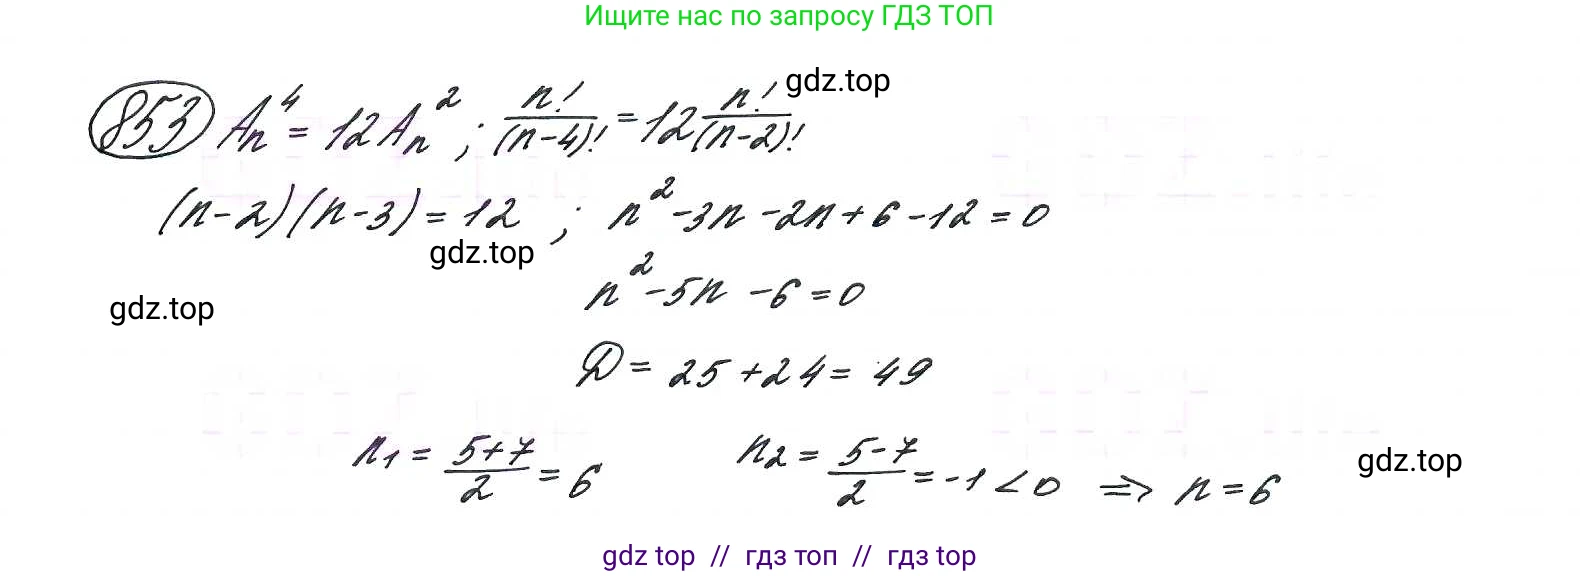 Ищите нас по запросу ГДЗ ТОП
853 Aₙ⁴ = 12Aₙ² ; n!/(n-4)! = 12 n!/(n-2)! gdz.top
(n-2)(n-3) = 12 ; n² - 3n - 2n + 6 - 12 = 0
gdz.top
n² - 5n - 6 = 0
gdz.top
D = 25 + 24 = 49
n₁ = (5+7)/2 = 6 n₂ = (5-7)/2 = -1 < 0 ⇒ n = 6
gdz.top
gdz top // гдз топ // гдз top